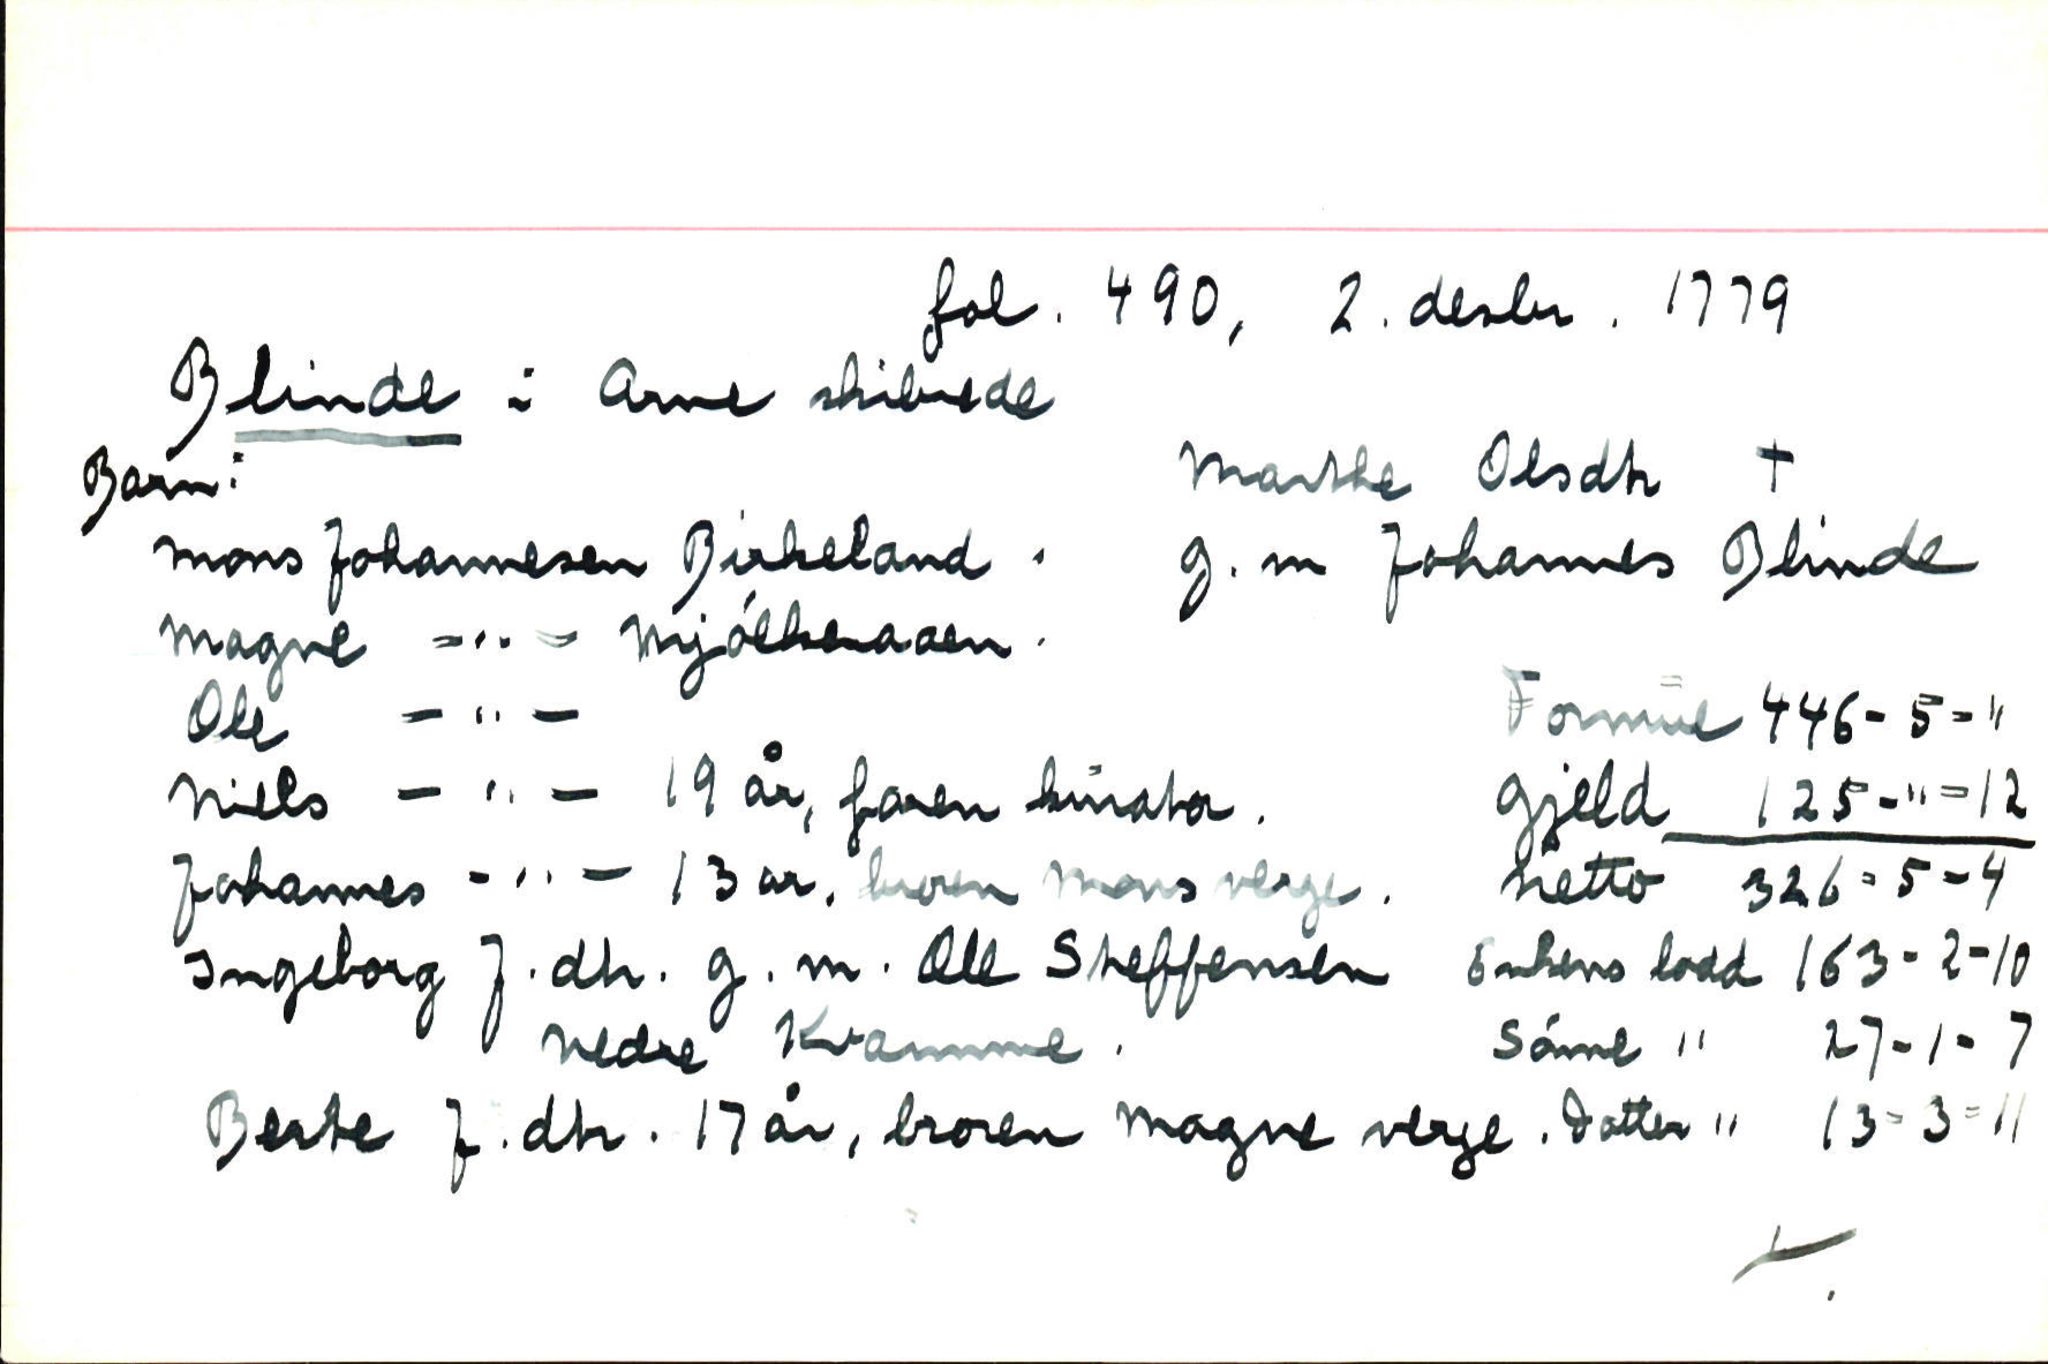 fol. 490, 2. desbr. 1779
Blinde i Arne skibrede
Barn: Marthe Olsdtr †
Mons Johannesen Birkeland. g. m Johannes Blinde
Magne -"- Mjölkeraaen.
Ole -"- Formue 446-5-"
Niels -"- 19 år, faren kurator. Gjeld 125-"-12
Johannes -"- 13 år, broren Mons verge. Netto 326-5-4
Ingeborg J.dtr. g.m. Ole Steffensen Enkens lodd 163-2-10
Nedre Kvamme. Sönne " 27-1-7
Berte J.dtr. 17 år, broren Magne verge. Datter " 13-3-11